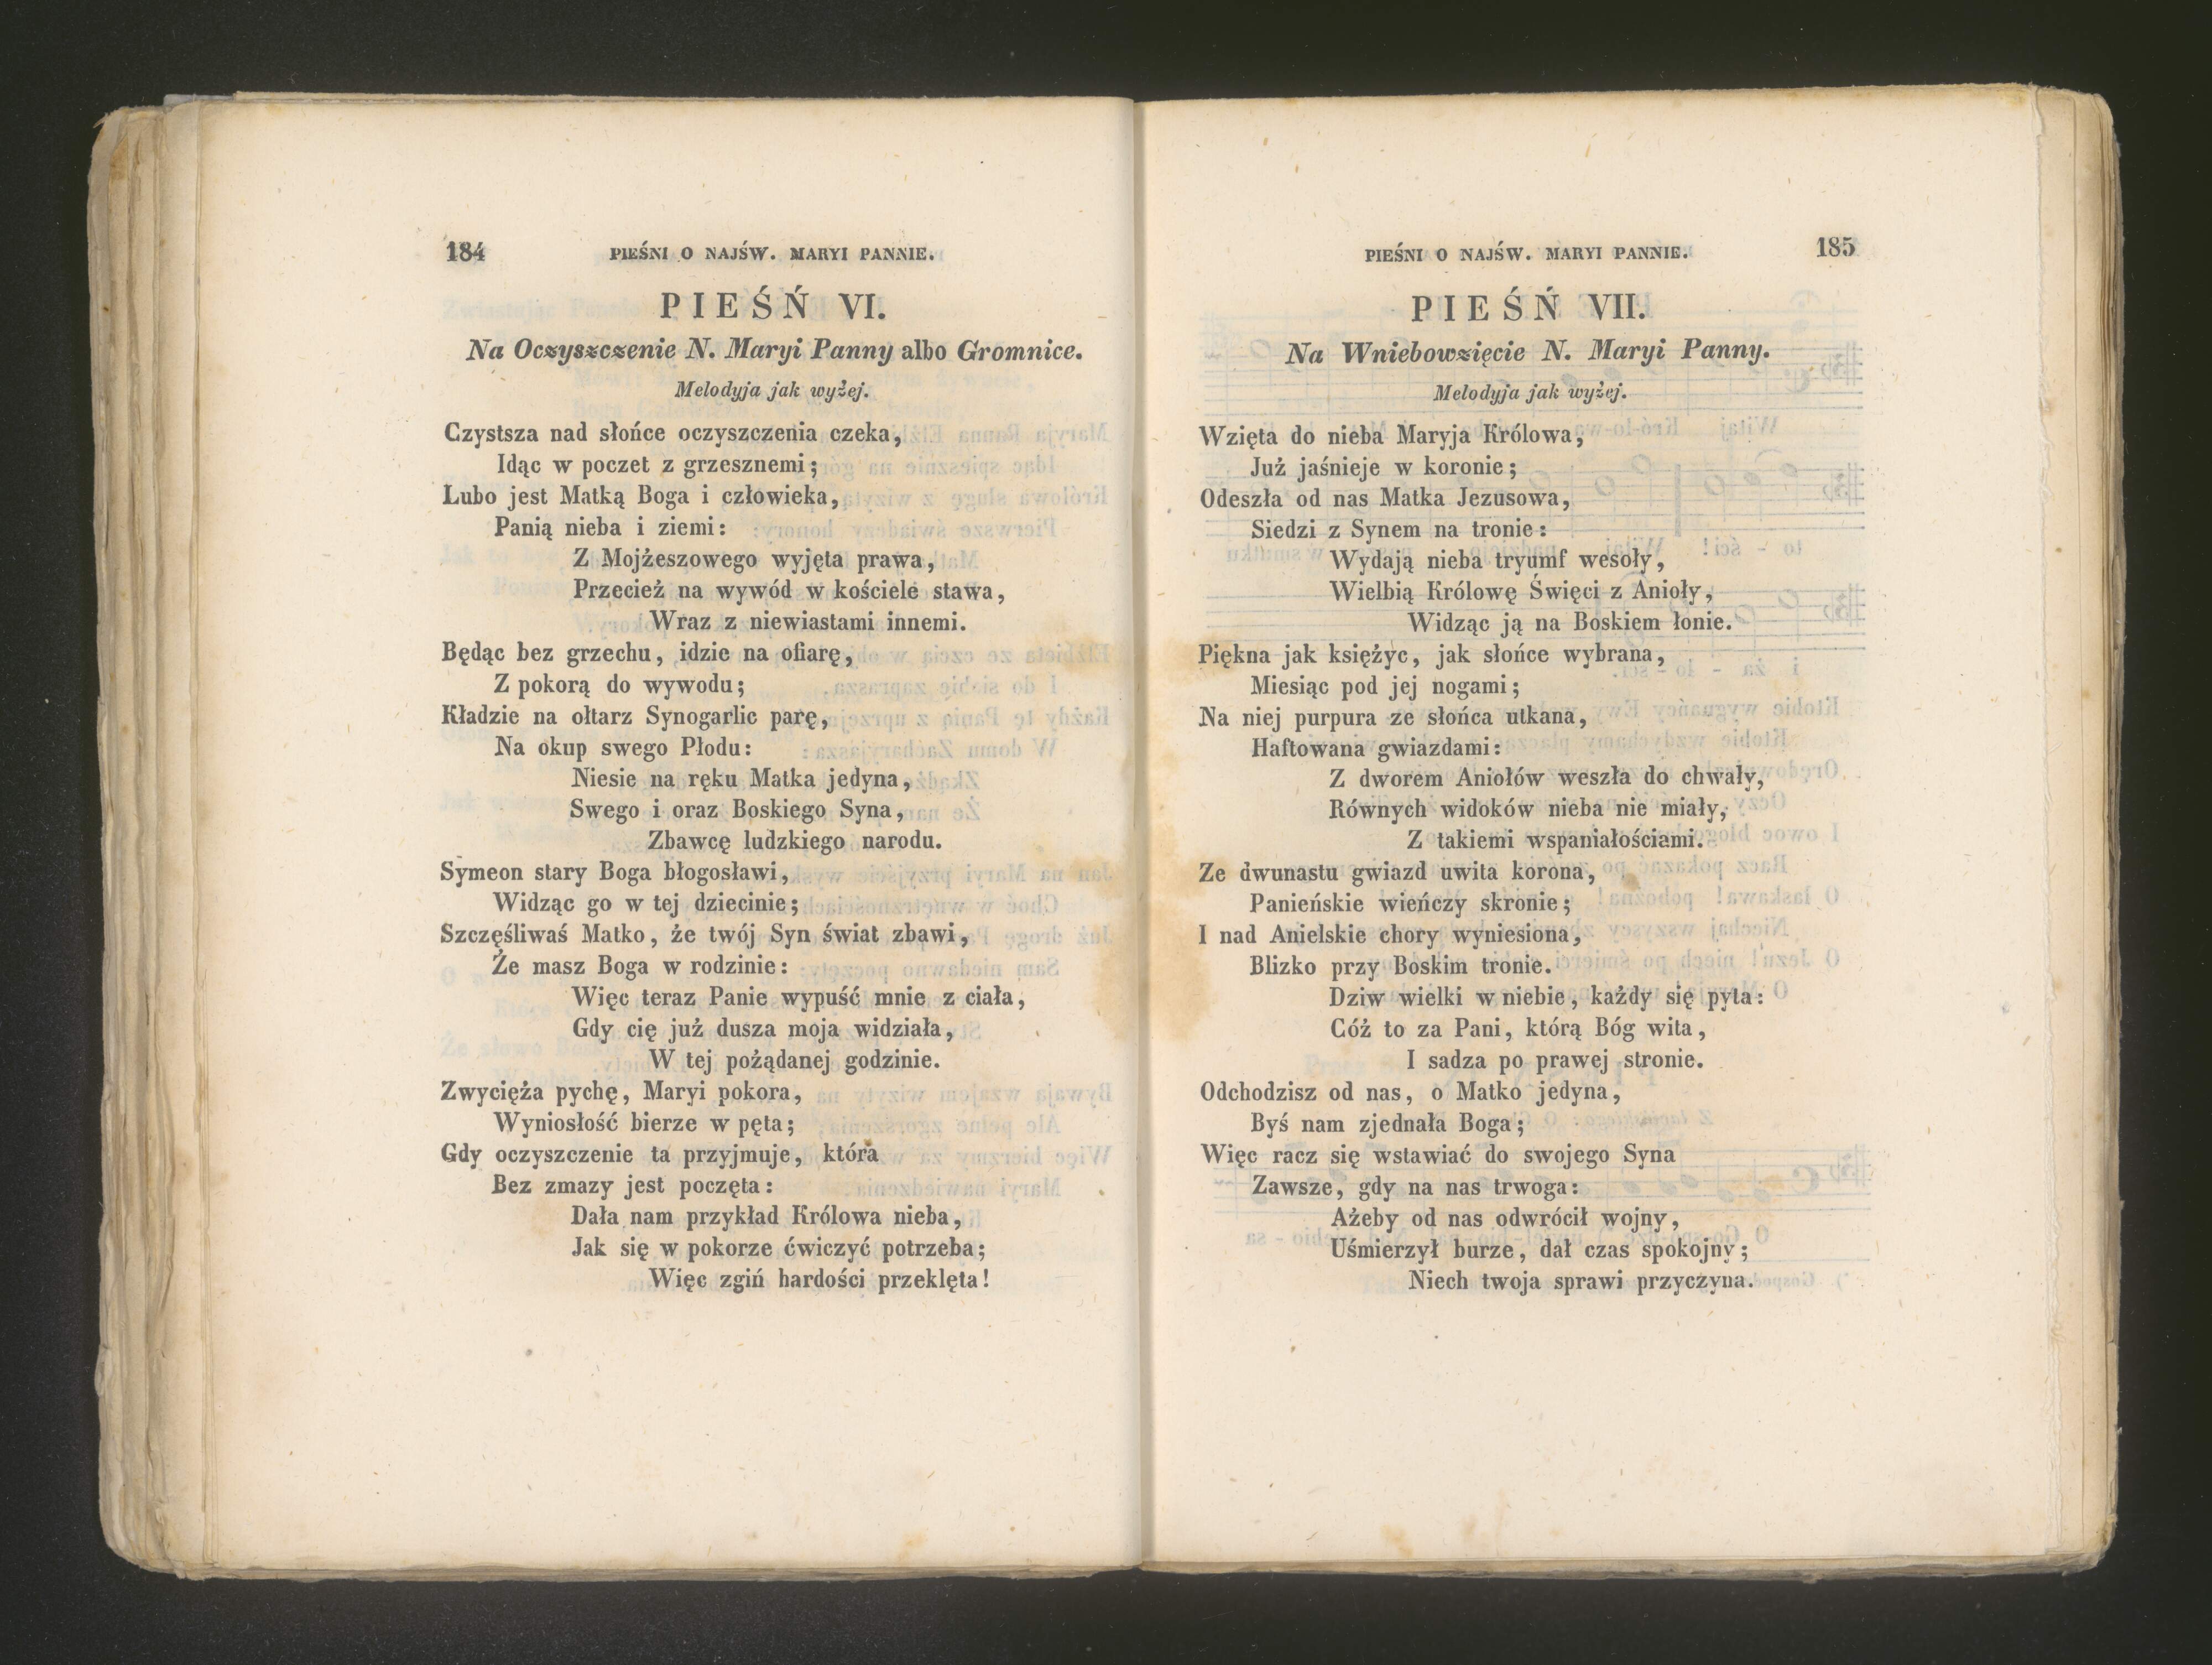 184 PIEŚNI O NAJŚW. MARYI PANNIE.
PIEŚŃ VI.
Na Oczyszczenie N. Maryi Panny albo Gromnice.
Melodyja jak wyżej.
Czystsza nad słońce oczyszczenia czeka,
Idąc w poczet z grzesznemi;
Lubo jest Matką Boga i człowieka,
Panią nieba i ziemi:
Z Mojżeszowego wyjęta prawa,
Przecież na wywód w kościele stawa,
Wraz z niewiastami innemi.
Będąc bez grzechu, idzie na ofiarę,
Z pokorą do wywodu;
Kładzie na ołtarz Synogarlic parę,
Na okup swego Płodu:
Niesie na ręku Matka jedyna,
Swego i oraz Boskiego Syna,
Zbawcę ludzkiego narodu.
Symeon stary Boga błogosławi,
Widząc go w tej dziecinie;
Szczęśliwaś Matko, że twój Syn świat zbawi,
Że masz Boga w rodzinie:
Więc teraz Panie wypuść mnie z ciała,
Gdy cię już dusza moja widziała,
W tej pożądanej godzinie.
Zwycięża pychę, Maryi pokora,
Wyniosłość bierze w pęta;
Gdy oczyszczenie ta przyjmuje, która
Bez zmazy jest poczęta:
Dała nam przykład Królowa nieba,
Jak się w pokorze ćwiczyć potrzeba;
Więc zgiń hardości przeklęta!
PIEŚNI O NAJŚW. MARYI PANNIE. 185
PIEŚŃ VII.
Na Wniebowzięcie N. Maryi Panny.
Melodyja jak wyżej.
Wzięta do nieba Maryja Królowa,
Już jaśnieje w koronie;
Odeszła od nas Matka Jezusowa,
Siedzi z Synem na tronie:
Wydają nieba tryumf wesoły,
Wielbią Królowę Święci z Anioły,
Widząc ją na Boskiem łonie.
Piękna jak księżyc, jak słońce wybrana,
Miesiąc pod jej nogami;
Na niej purpura ze słońca utkana,
Haftowana gwiazdami:
Z dworem Aniołów weszła do chwały,
Równych widoków nieba nie miały,
Z takiemi wspaniałościami.
Ze dwunastu gwiazd uwita korona,
Panieńskie wieńczy skronie;
I nad Anielskie chory wyniesiona,
Blizko przy Boskim tronie.
Dziw wielki w niebie, każdy się pyta:
Cóż to za Pani, którą Bóg wita,
I sadza po prawej stronie.
Odchodzisz od nas, o Matko jedyna,
Byś nam zjednała Boga;
Więc racz się wstawiać do swojego Syna
Zawsze, gdy na nas trwoga:
Ażeby od nas odwrócił wojny,
Uśmierzył burze, dał czas spokojny;
Niech twoja sprawi przyczyna.